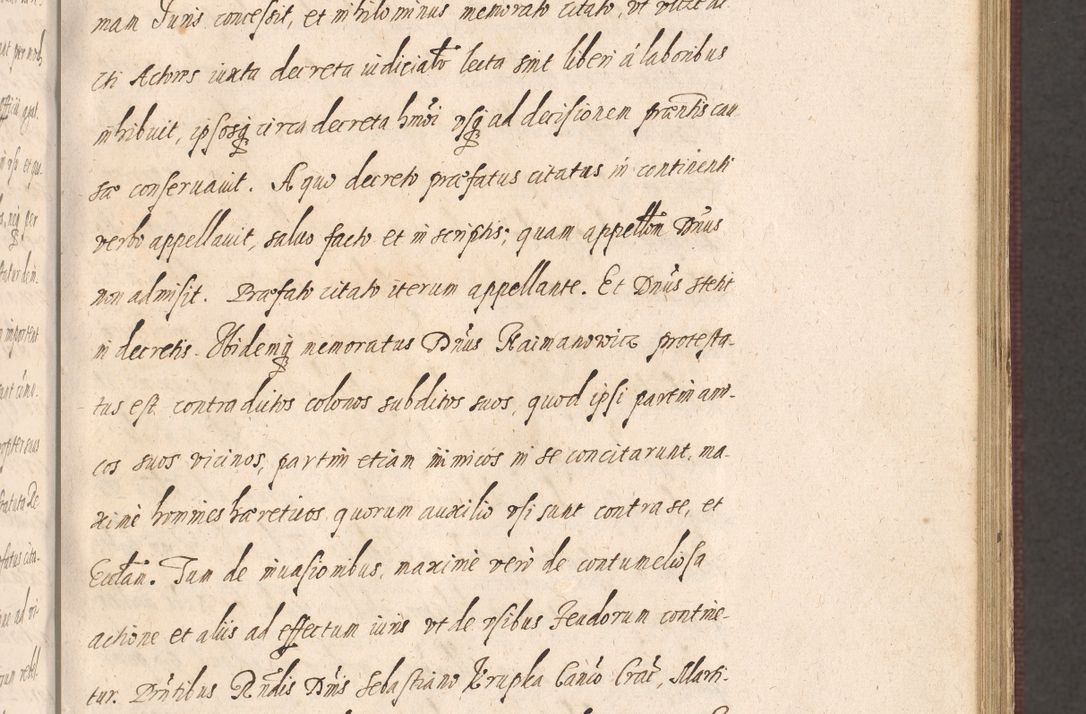 mam Juris concessit, et nihilominus memorato citato, vt
cti Actores iuxta decreta iudiciałr lecta sint liberi á laboribus
inhibuit, ipsosq circa decreta hmõi vsq ad decisionem præntis cau
sæ conseruauit. A quo decreto præfatus citatus in continenti
verbo appellauit, saluo facto et in scriptis; quam appellõm Dñus
non admisit. Præfato citato iterum appellante. Et Dñus stetit
in decretis. Ibidemq memoratus Dñus Raimanowicz protesta-
tus est contra dictos colonos subditos suos, quod ipsi partim ami-
cos suos vicinos, partim etiam inimicos in se concitarunt, ma-
xime homines hæreticos, quorum auxilio vsi sunt contra se, et
Eccłam. Tam de inuasionibus, maximè verò de contumeliosa
actione et aliis ad effectum iuris vt de vsibus Feudorum contine-
tur. Pñtibus Rñdis Dñis Sebastiano Krupka Canco Crac, Marti-